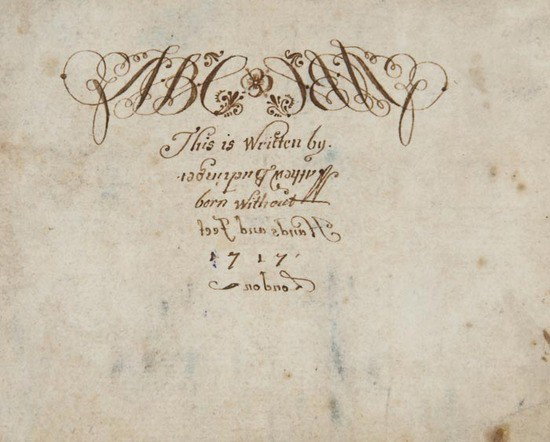 ABC ABC
This is Written by.
Matthew Buchinger.
born without
Hands and Feet
1717.
London